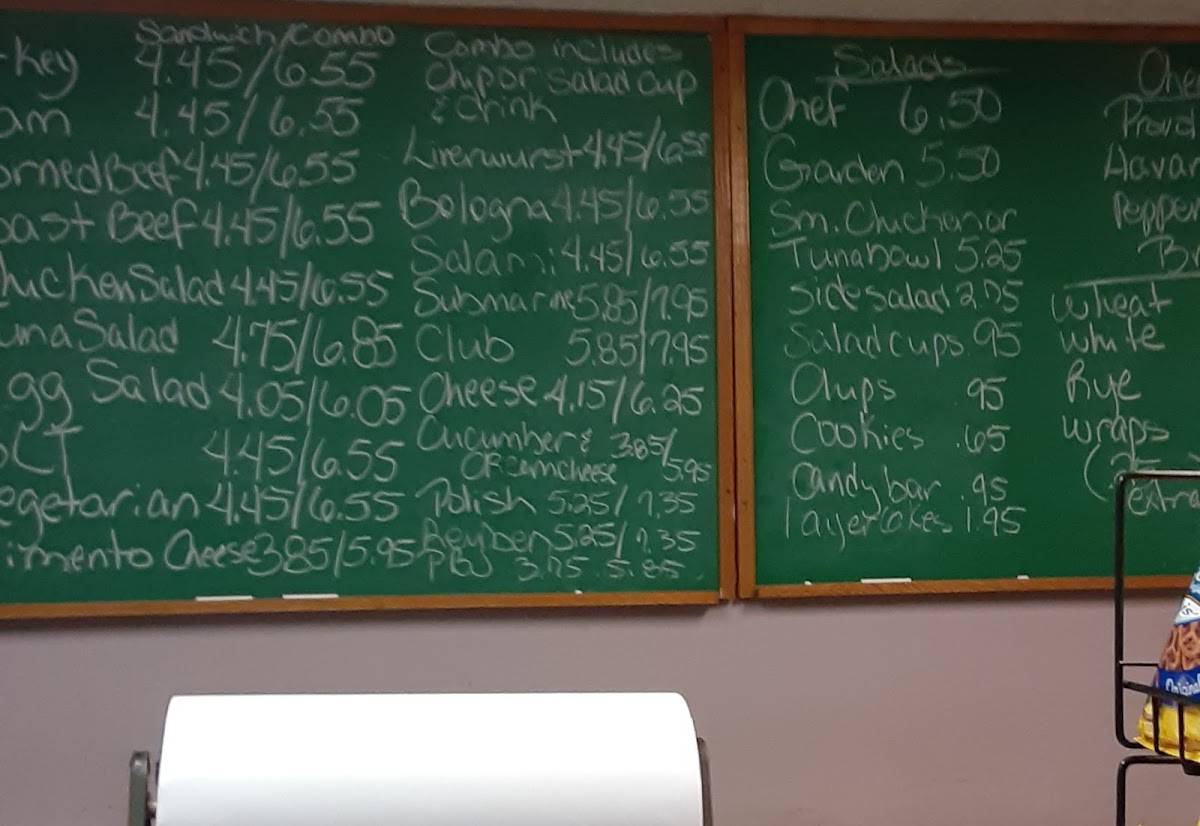 Sandwich/Combo
key 4.45/6.55
am 4.45/6.55
ornedBeef 4.45/6.55
oast Beef 4.45/6.55
hickenSalad 4.45/6.55
una Salad 4.75/6.85
gg Salad 4.05/6.05
LT 4.45/6.55
egetarian 4.45/6.55
imento Cheese 3.85/5.95
Combo includes
Chip or Salad Cup
& drink
Liverwurst 4.45/6.55
Bologna 4.45/6.55
Salami 4.45/6.55
Submarine 5.85/7.95
Club 5.85/7.95
Cheese 4.15/6.25
Cucumber & 3.85/
Creamcheese 5.95
Polish 5.25/7.35
Reuben 5.25/7.35
PBJ 3.75 5.85
Salads
Chef 6.50
Garden 5.50
Sm. Chicken or
Tuna bowl 5.25
Side salad 2.75
Salad cups .95
Chips .95
Cookies .65
Candy bar .95
layer cakes 1.95
Che
Provol
Havar
Pepper
Br
Wheat
White
Rye
wraps
extra
Original